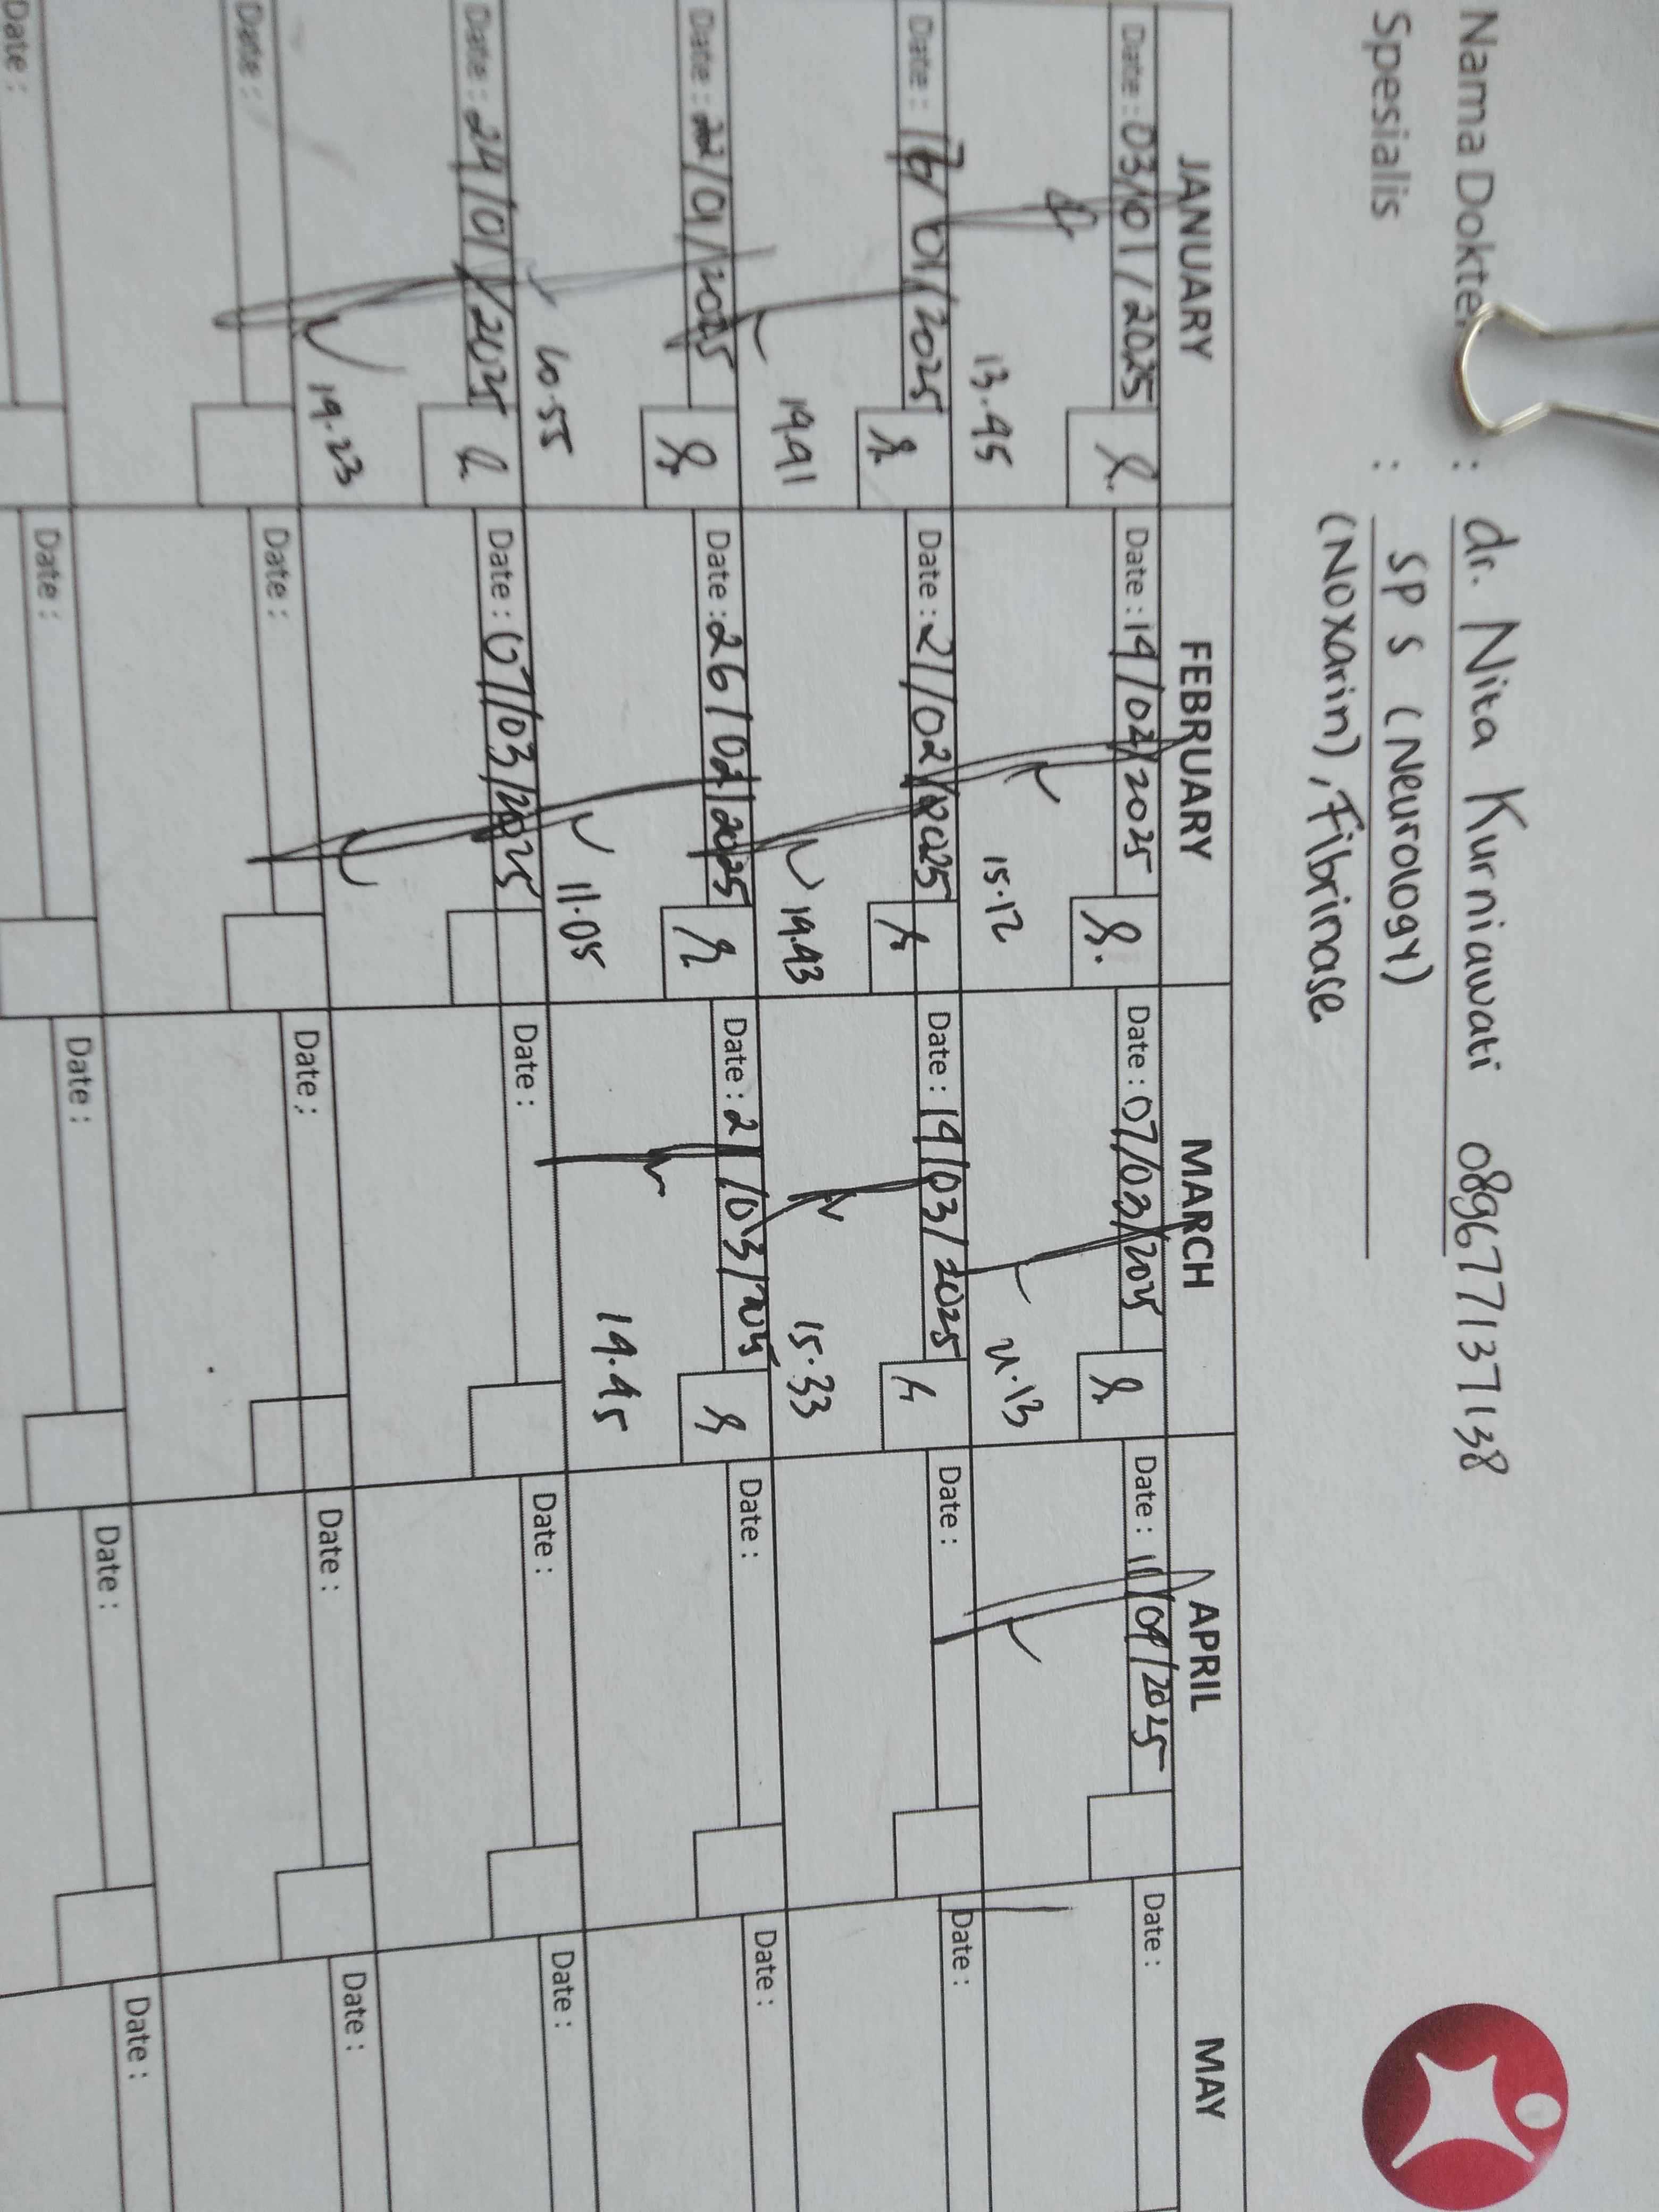 Nama Dokter : dr. Nita Kurniawati 089677137138
Spesialis : Sp S (Neurology)
(Noxarin), Fibrinase
JANUARY FEBRUARY MARCH APRIL MAY
Date : 03/01/2025 Date : 19/02/2025 Date : 07/03/2025 Date : 11/04/2025 Date :
13.45 15.12 13
Date : /01/2025 Date : 21/02/2025 Date : 19/03/2025 Date : Date :
19.41 19.43 15.33
Date : 22/01/2025 Date : 26/02/2025 Date : 21/03/2025 Date : Date :
10.55 11.05 19.45
Date : 24/01/2025 Date : 07/03/2025 Date : Date : Date :
19.23
Date : Date : Date : Date : Date :
Date : Date : Date : Date : Date :